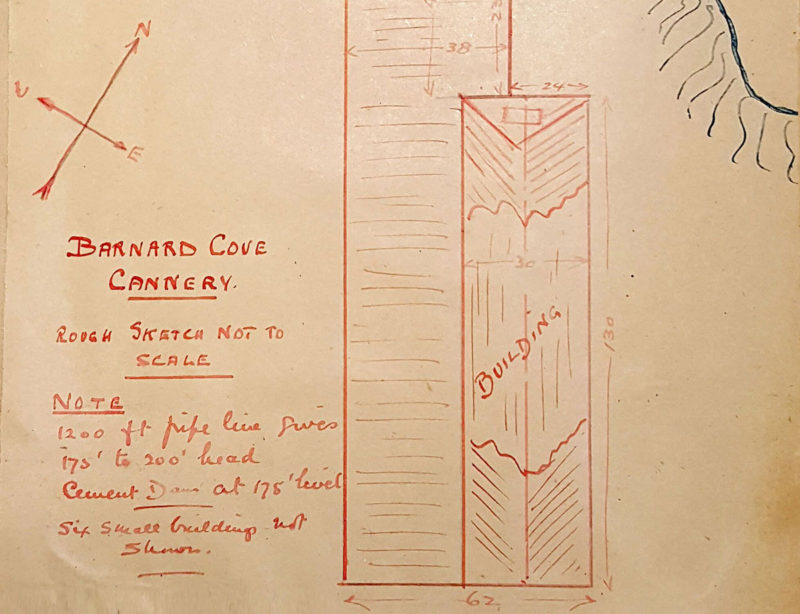 N
38
23
24
E
BARNARD COVE
CANNERY.
30
ROUGH SKETCH NOT TO
SCALE
130
BUILDING
NOTE
1200 ft pipe line gives
175' to 200' head
Cement Dam at 175' level
Six small buildings not
Shown.
62